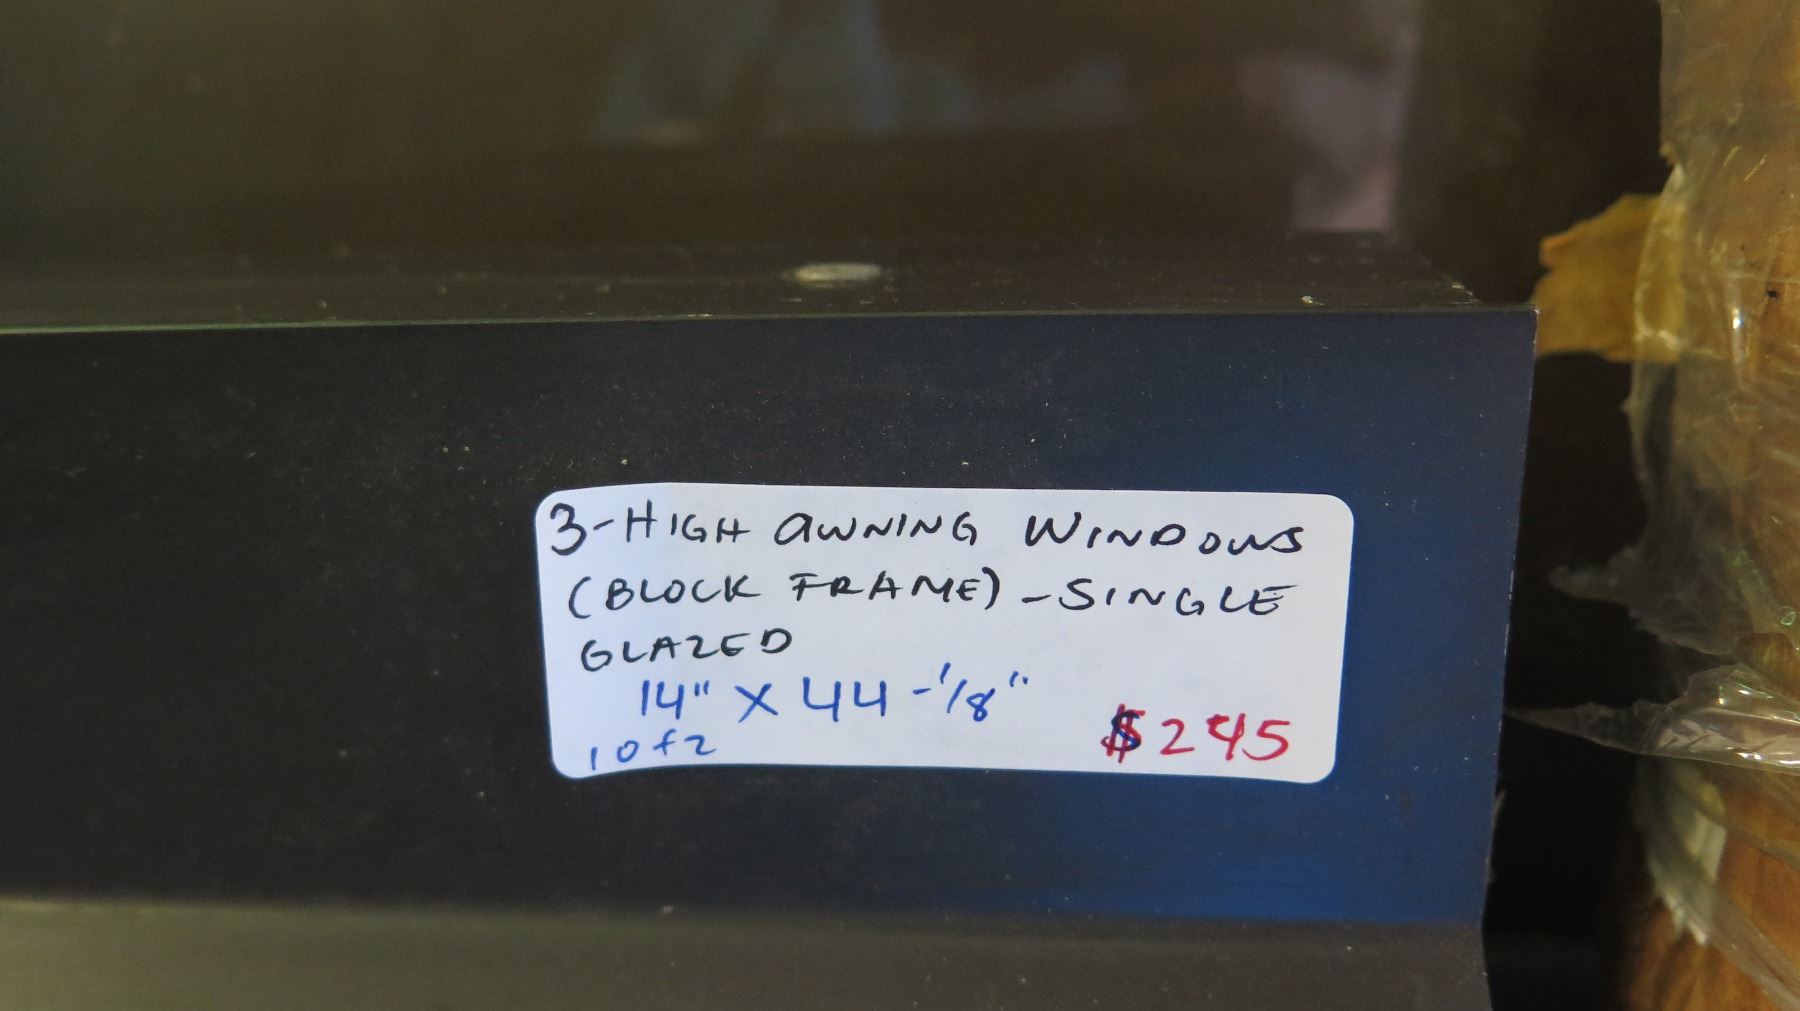 3-HIGH AWNING WINDOWS
(BLOCK FRAME) - SINGLE
GLAZED
14" X 44-1/8"
1 of 2 $245